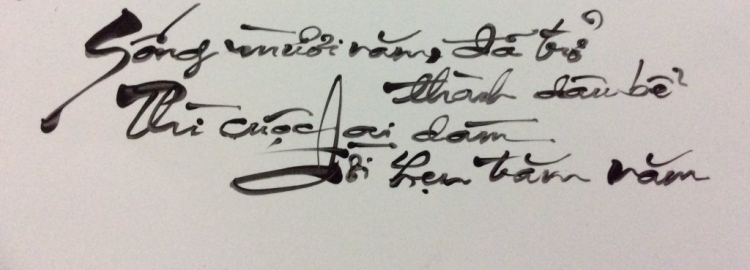 Sống mười năm, đã trở
thành dâu bể
Thì cuộc đời dám
hẹn trăm năm